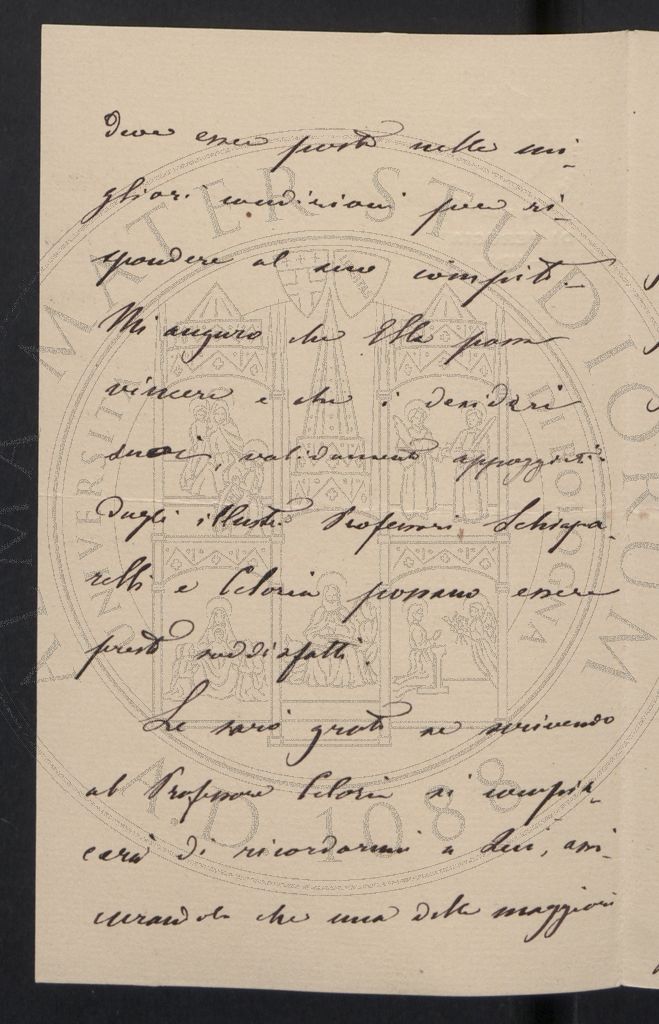 deve esser posto nelle mi-
gliori condizioni per ri-
spondere al suo compito.
Mi auguro che Ella possa
vincere e che i desideri
suoi, validamente appoggiati
dagli illustri Professori Schiapa-
relli e Celoria possano essere
presto soddisfatti.
Le sarò grato se scrivendo
al Professore Celoria si compia-
cerà di ricordarmi a Lui, assi-
curandolo che una delle maggiori
ALMA MATER STUDIORUM
UNIVERSITÀ DI BOLOGNA
A.D. 1088
LIBERTAS